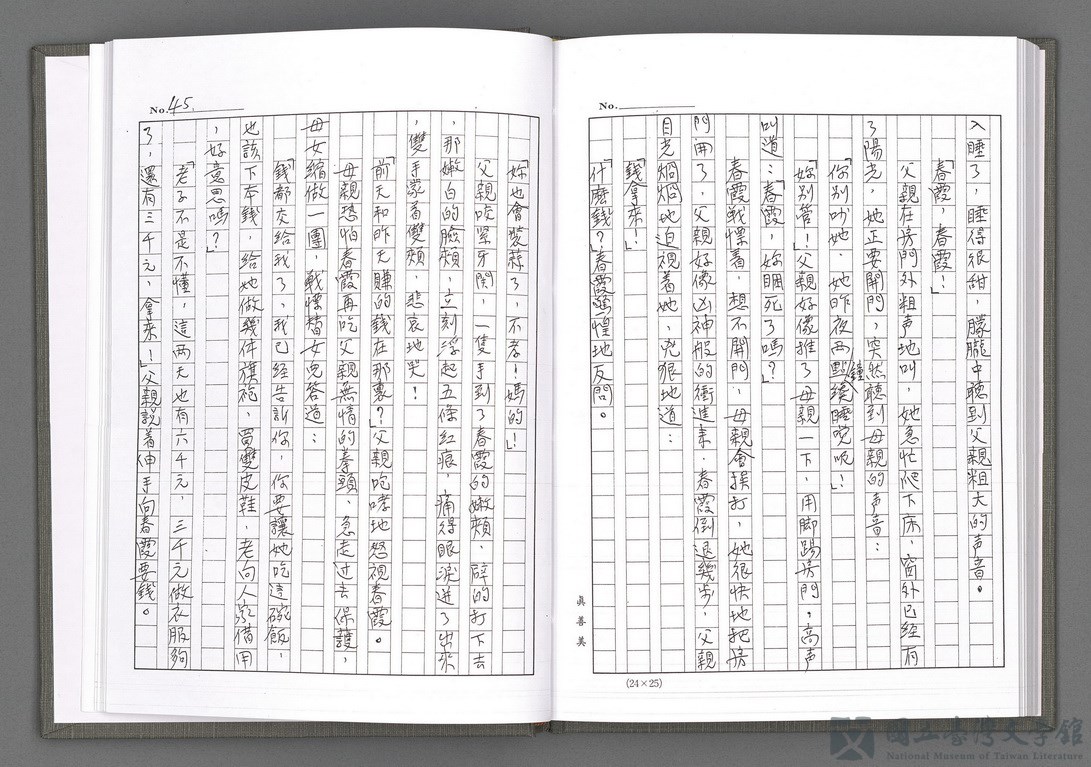 No.
入睡了，睡得很甜，朦朧中聽到父親粗大的声音。
「春霞，春霞！」
父親在房門外粗声地叫，她急忙爬下床，窗外已經有
了陽光，她正要開門，突然聽到母親的声音：
「你別吵她，她昨夜兩點鐘纔睡覺呢！」
「妳別管！」父親好像推了母親一下，用脚踢房門，高声
叫道：「春霞，妳睏死了嗎？」
春霞戰慄着，想不開門，母親會挨打，她很快地把房
門開了，父親好像凶神般的衝進来，春霞倒退幾步，父親
目光烱烱地迫視着她，兇狠地道：
「錢拿來！」
「什麼錢？」春霞驚惶地反問。
眞善美
(24×25)
No. 45.
「妳也會裝蒜了，不孝！媽的！」
父親咬緊牙関，一隻手到了春霞的嫩頰，碎的打下去
，那嫩白的臉頰，立刻浮起五條紅痕，痛得眼淚迸了出來
，雙手蒙着雙頰，悲哀地哭！
「前天和昨天賺的錢在那裏？」父親咆哮地怒視春霞。
母親恐怕春霞再吃父親無情的拳頭，急走过去保護，
母女縮做一團，戰慄替女兒答道：
「錢都交給我了，我已經告訴你，你要讓她吃這碗飯，
也該下本錢，給她做幾件旗袍，買雙皮鞋，老向人家借用
，好意思嗎？」
「老子不是不懂，這兩天也有六千元，三千元做衣服夠
了，還有三千元，拿來！」父親説着伸手向春霞要錢。
國立臺灣文學館
National Museum of Taiwan Literature